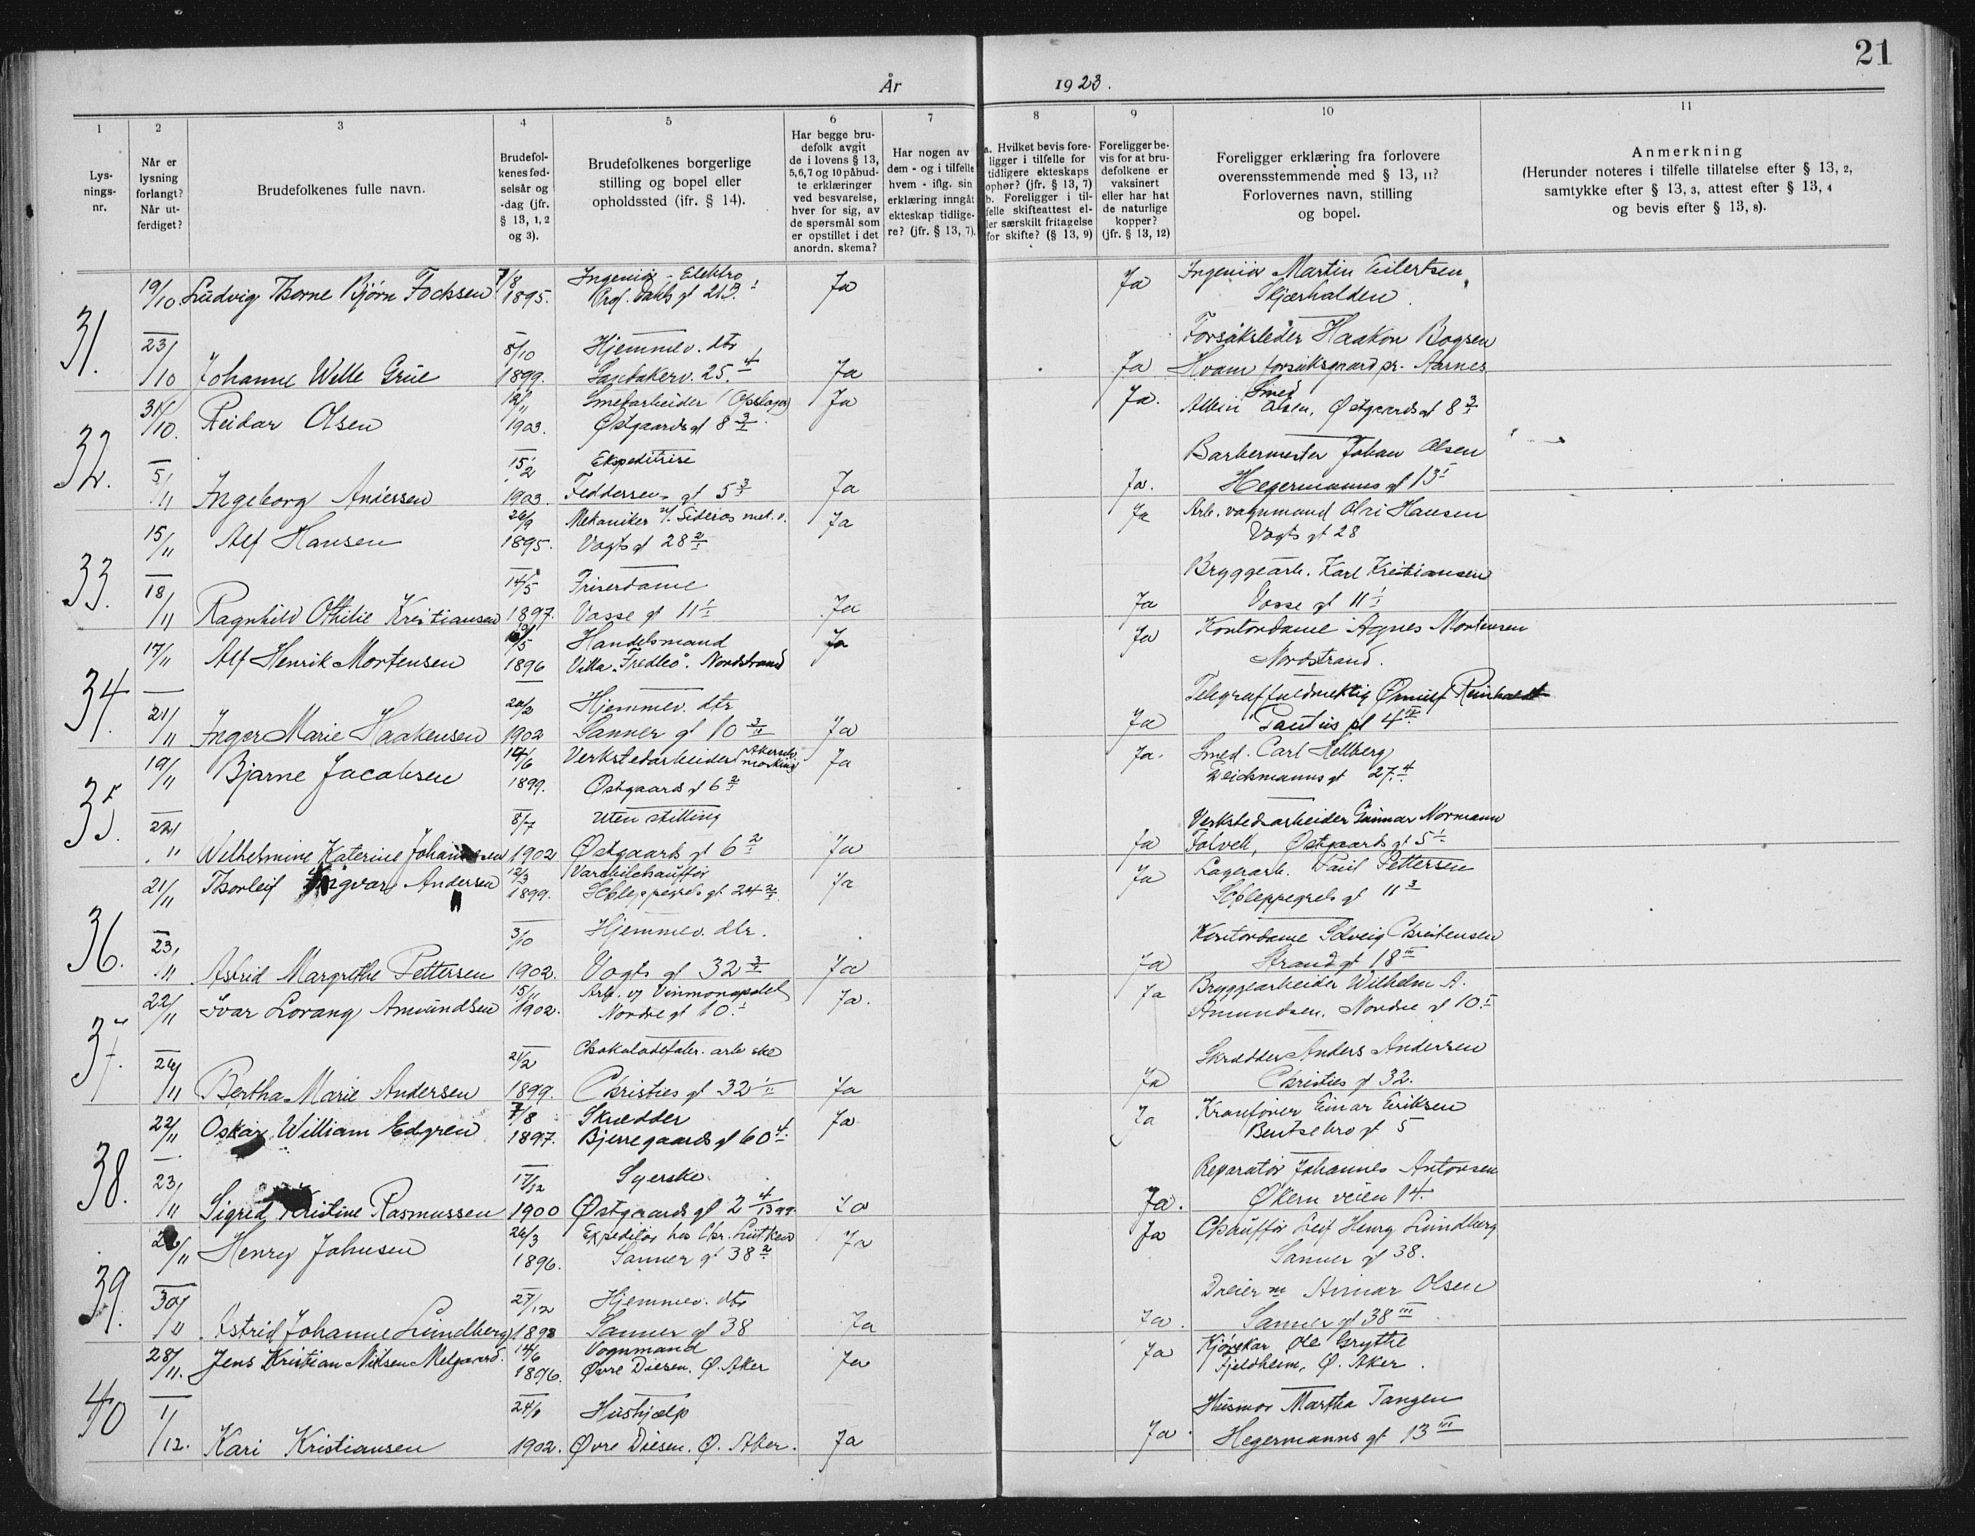 21
År 1923.
1 2 3 4 5 6 7 8 9 10 11
Lys-
nings-
nr.
Når er
lysning
forlangt?
Når ut-
ferdiget?
Brudefolkenes fulle navn.
Brudefol-
kenes fød-
selsår og
-dag (jfr.
§ 13, 1, 2
og 3).
Brudefolkenes borgerlige
stilling og bopel eller
opholdssted (jfr. § 14).
Har begge bru-
defolk avgit
de i lovens § 13,
5,6,7 og 10 påbud-
te erklæringer
ved besvarelse,
hver for sig, av
de spørsmål som
er opstillet i det
anordn. skema?
Har nogen av
dem - og i tilfelle
hvem - iflg. sin
erklæring inngåt
ekteskap tidlige-
re? (jfr. § 13, 7).
a. Hvilket bevis fore-
ligger i tilfelle for
tidligere ekteskaps
ophør? (jfr. § 13, 7)
b. Foreligger i til-
felle skifteattest el-
ler særskilt fritagelse
for skifte? (§ 13, 9)
Foreligger be-
vis for at bru-
defolkene er
vaksinert
eller har hat
de naturlige
kopper?
(jfr. § 13, 12)
Foreligger erklæring fra forlovere
overensstemmende med § 13, 11?
Forlovernes navn, stilling
og bopel.
Anmerkning
(Herunder noteres i tilfelle tillatelse efter § 13, 2,
samtykke efter § 13, 3, attest efter § 13, 4
og bevis efter § 13, 8).
31. 19/10 Ludvig Thorne Bjørn Fochsen 7/8 1895. Ingeniør - Elektro Prof. Dahls gt 21 Ja Ja Ingeniør Martin Eilertsen, Skjærhalden.
23/10 Johanne Welle Grue 8/10 1899. Hjemmev. dtr Sandakerv. 25. 4 Ja Ja Forsøksleder Haakon Bogsen Hvam forsøksgaard pr. Aarnes
32. 31/10. Reidar Olsen 12/11 1903. Smedarbeider Østgaards gt 8 3/I Ja Ja. Smed Albin Olsen, Østgaards gt 8 3/I
5/11 Ingeborg Andersen 15/2 1903. Ekspeditrise Feddersens gt 5 3/I Ja Ja. Barbermester Johan Olsen Hegermanns gt 13 I
33. 15/11 Alf Hansen 26/9 1895. Mekaniker v/. Sideros mek. v. Vogts gt 28 2/I Ja Ja Arb. vognmand Olai Hansen Vogts gt 28
18/11 Ragnhild Othilie Kristiansen 14/5 1897. Friserdame Vosse gt 11 1/I Ja Ja Bryggearb. Karl Kristiansen Vosse gt 11 1/I
34. 17/11 Alf Henrik Mortensen 1896 Handelsmand Villa "Fredbo". Nordstrand Ja Ja Kontordame Agnes Mortensen Nordstrand.
21/11 Inger Marie Haakensen 20/2 1902 Hjemmev. dtr Sanner gt 10 3/II Ja Ja Telegraffuldmektig Reinhardt Paulus pl 4 II
35. 19/11 Bjarne Jacobsen 14/6 1899. Verkstedarbeider Østgaards gt 6 2/I Ja Ja. Smed. Carl Hellberg Deichmanns gt 27. 4
22/11 Wilhelmine Katerine Johannesen 8/7 1902 Uten stilling Østgaards gt 6 2/I Ja Ja Verkstedsarbeider Gunnar Normann Østgaards gt 5 1/I
36. 21/11 Thorleif Ingvar Andersen 12/3 1899. Varebilchauffør Schleppegrels gt 24 2/I. Ja Ja Lagerarb. Paul Pettersen Schleppegrels gt 11 3
23/11 Astrid Margrethe Pettersen 3/10 1902. Hjemmev. dtr. Vogts gt 32 3/I Ja Ja Kontordame Solveig Christensen Strand gt 18 III
37. 22/11 Ivar Lorang Amundsen 15/11 1902. Arb. v/ Vinmonopolet Nordre gt 10. I Ja. Ja Bryggearbeider Wilhelm A. Amundsen. Nordre gt 10. I
26/11 Bertha Marie Andersen 21/2 1899. Chokoladefabr. arb ske Christies gt 32 1/II Ja Ja Skrædder Anders Andersen Christies gt 32.
38. 22/11 Oskar William Edgren 7/8 1897. Skrædder Bjerregaards gt 60 4/I Ja Ja Kranfører Einar Eriksen Bentsebro gt 5
23/11 Sigrid Kristine Rasmussen 17/12 1900 Syerske. Østgaards gt 2 4 Ja Ja. Reparatør Johannes Antonsen Økern veien 14.
39. /11 Henry Johnsen 26/3 1896. Expeditør hos Chr. Lütken Sanner gt 38 2/I Ja Ja Chauffør Leif Henry Lundberg Sanner gt 38.
30/11 Astrid Johanne Lundberg 27/12 1898 Hjemmev. dtr Sanner gt 38 Ja Ja. Dreier m Olsen Sanner gt 38 III
40 28/11. Jens Kristian Nilsen Melgaard. 14/6 1896. Vognmand Øvre Diesen. Ø. Aker Ja Ja Ole Grythe Fjeldheim, Ø. Aker.
1/12. Kari Kristiansen 1902. Hushjælp Øvre Diesen. Ø. Aker. Ja Ja. Husmor Martha Tangen Hegermanns gt 13 III